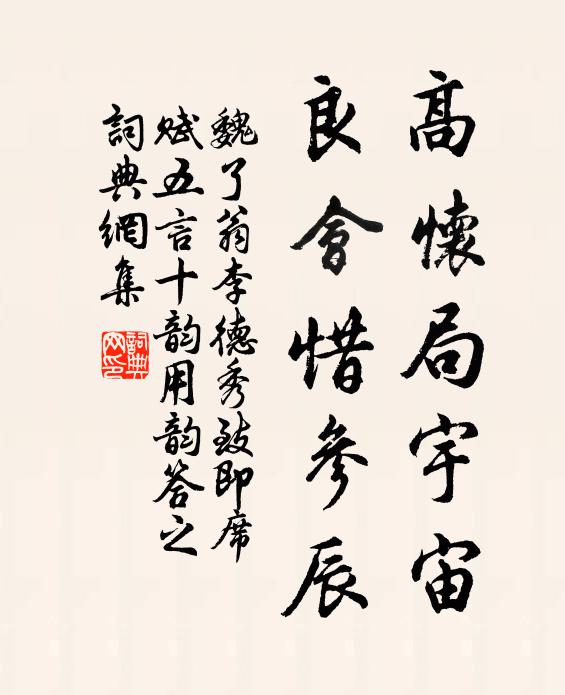 高懷局宇宙
良會惜參辰
魏了翁李德秀致即席
賦五言十韵用韵答之
詞典網集
詞典网印